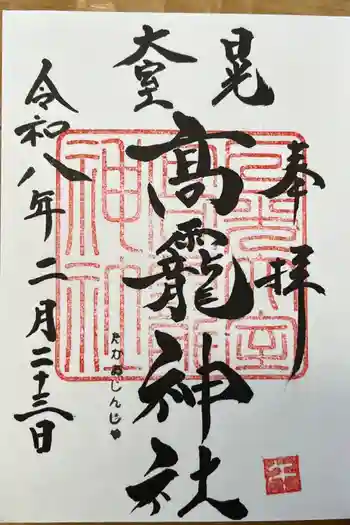 日光
大室
奉拝
髙龗神社
たかおじんじゃ
令和八年二月二十三日